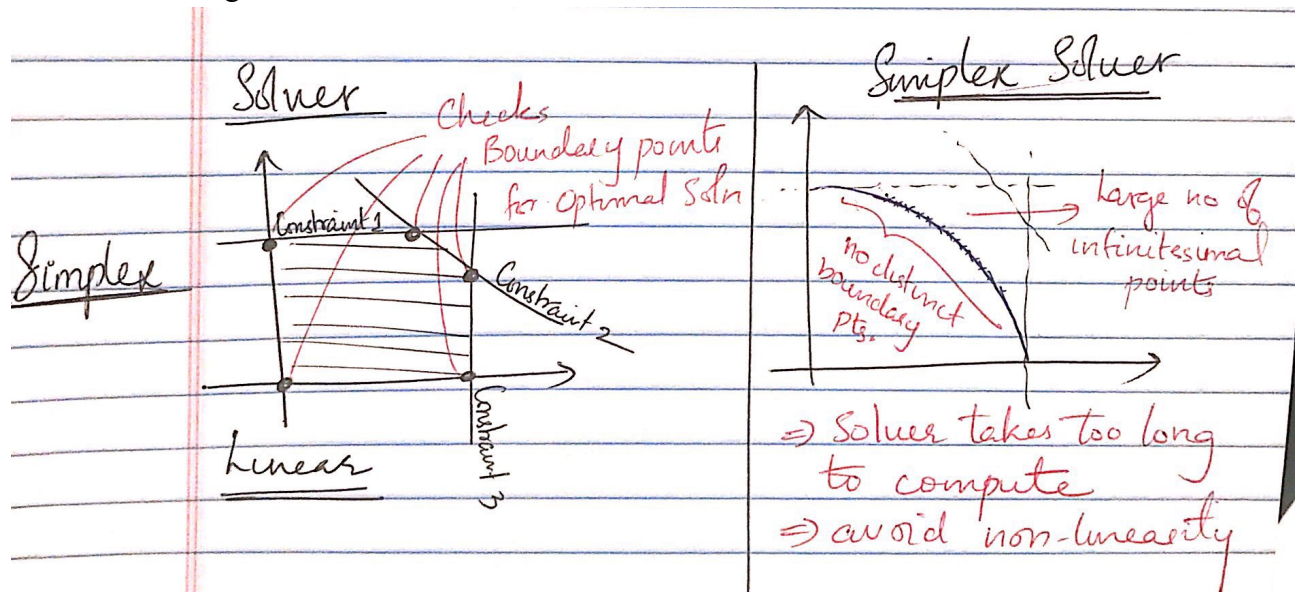 Solver
Checks
Boundary points
for Optimal Soln
Constraint 1
Simplex
Constraint 2
Constraint 3
Linear
Simplex Solver
Large no of
infinitesimal
points
no distinct
boundary
pts.
⇒ Solver takes too long
to compute
⇒ avoid non-linearity